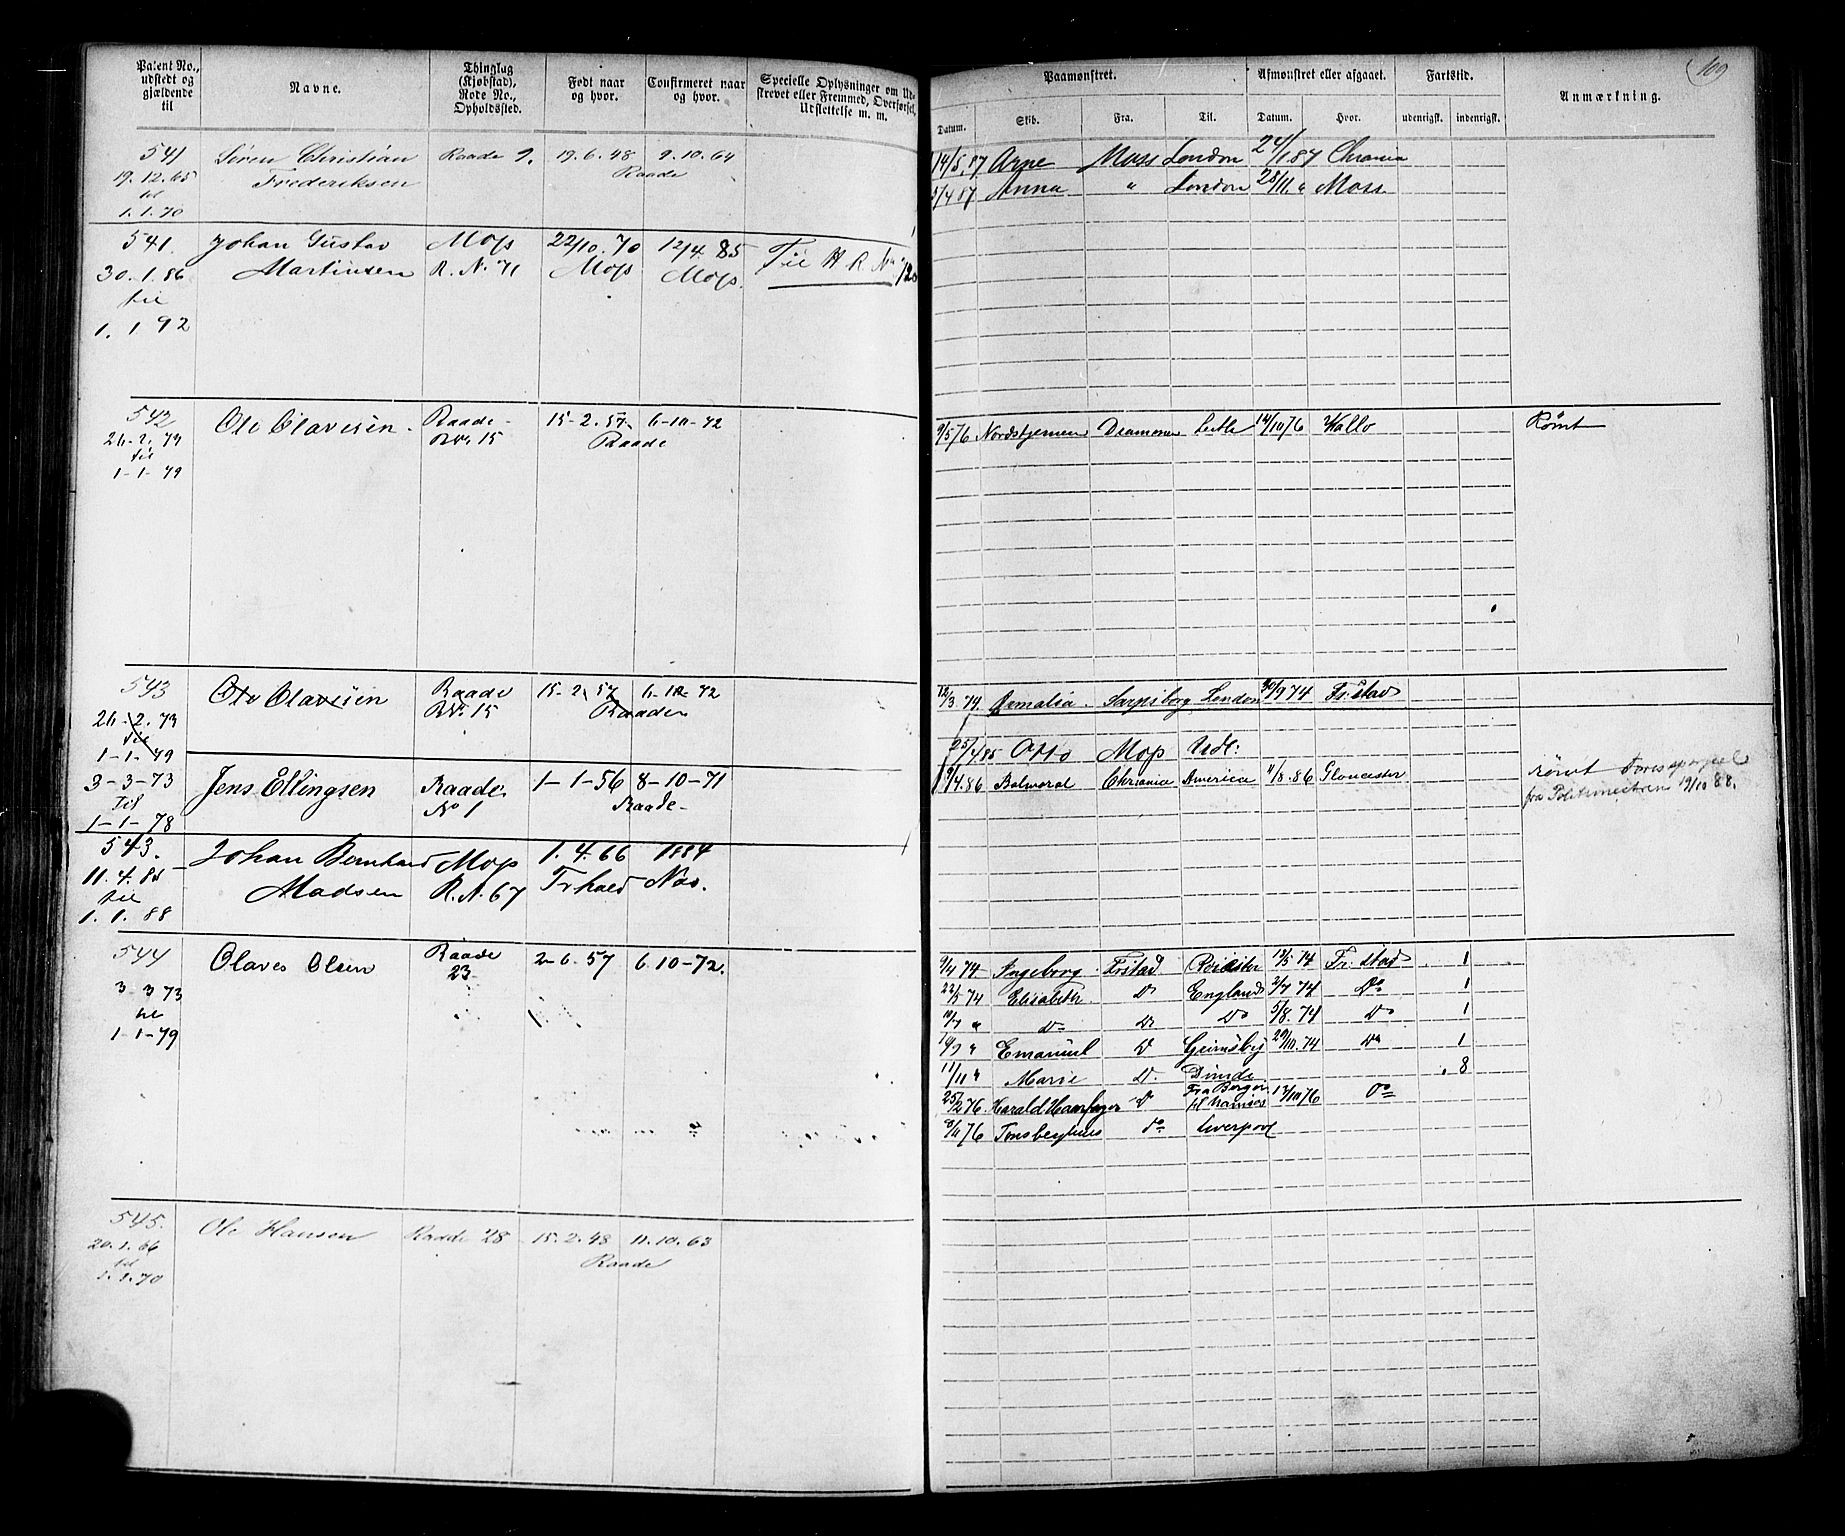 109
Patent No., udstedt og gjældende til
Navne.
Thinglag (Kjøbstad), Rode No., Opholdssted.
Født naar og hvor.
Confirmeret naar og hvor.
Specielle Oplysninger om Udskrevet eller Fremmed, Overførsel, Udslettelse m. m.
Paamønstret.
Afmønstret eller afgaaet.
Fartstid.
Anmærkning.
Datum.
Skib.
Fra.
Til.
Datum.
Hvor.
udenrigsk.
indenrigsk.
541 Søren Christian Raade 9. 19.6.48 9.10.64
19.12.65 Frederiksen Raade
til
1.1.70
541. Johan Gustav Moss 22/10.70 12/4.85 Til H R No
30.1.86 Martinsen R.N.71 Moss Moss.
til
1.1.92
542 Ole Olavesen. Raade- 15-2.57 6-10-72
26-2.73 R.No.15 Raade
til
1-1-79
543 Ole Olavesen Raade 15-2.57 6-10-72
26-2.73 R.No.15 Raade
til
1-1-79
3-3-73 Jens Ellingsen Raade 1-1-56 8-10-71
Til No 1 Raade-
1-1-78
543. Johan Bernhard Moss 1.4.66 1884
11.4.85 Madsen R.N.67 Fr.hald Nov.
til
1.1.88
544 Olaves Olsen Raade 2-6.57 6.10-72.
3-3 73 23-
til
1-1-79
545. Ole Hansen Raade 28 15.2.48 11.10.63
20.1.66 Raade
til
1.1.70
14/5.87 Arne Moss London 24/ 87 Chrania
5/4 87 Anna " London 28/11. " Moss
9/5 76 Nordstjernen Drammen Leith 14/10 76 Kallo Rømt
12/3.74. Amalia. Sarpsborg London 30/9 74 Fr:stad
25/4 85 Otto Moss Udl:
9/4.86 Balmoral Chrania America 11/8.86 Gloucester rømt
fra Politimesteren 19/10 88.
9/4 74 Ingeborg Frstad 19/5 74 Fr:stad 1
22/5 74 Elisabeth Do England 2/7 74 Do 1
10/7 " Do Do Do 5/8.74 Do 1
10/9 " Emanuel Do Grimsby 29/10.74 Do 1
11/11 " Marie Do. 8
25/2 76. Harald Haarfager Do Fra Bergen 13/10 76 Do
8/11 76 Tønsberghus do Liverpool